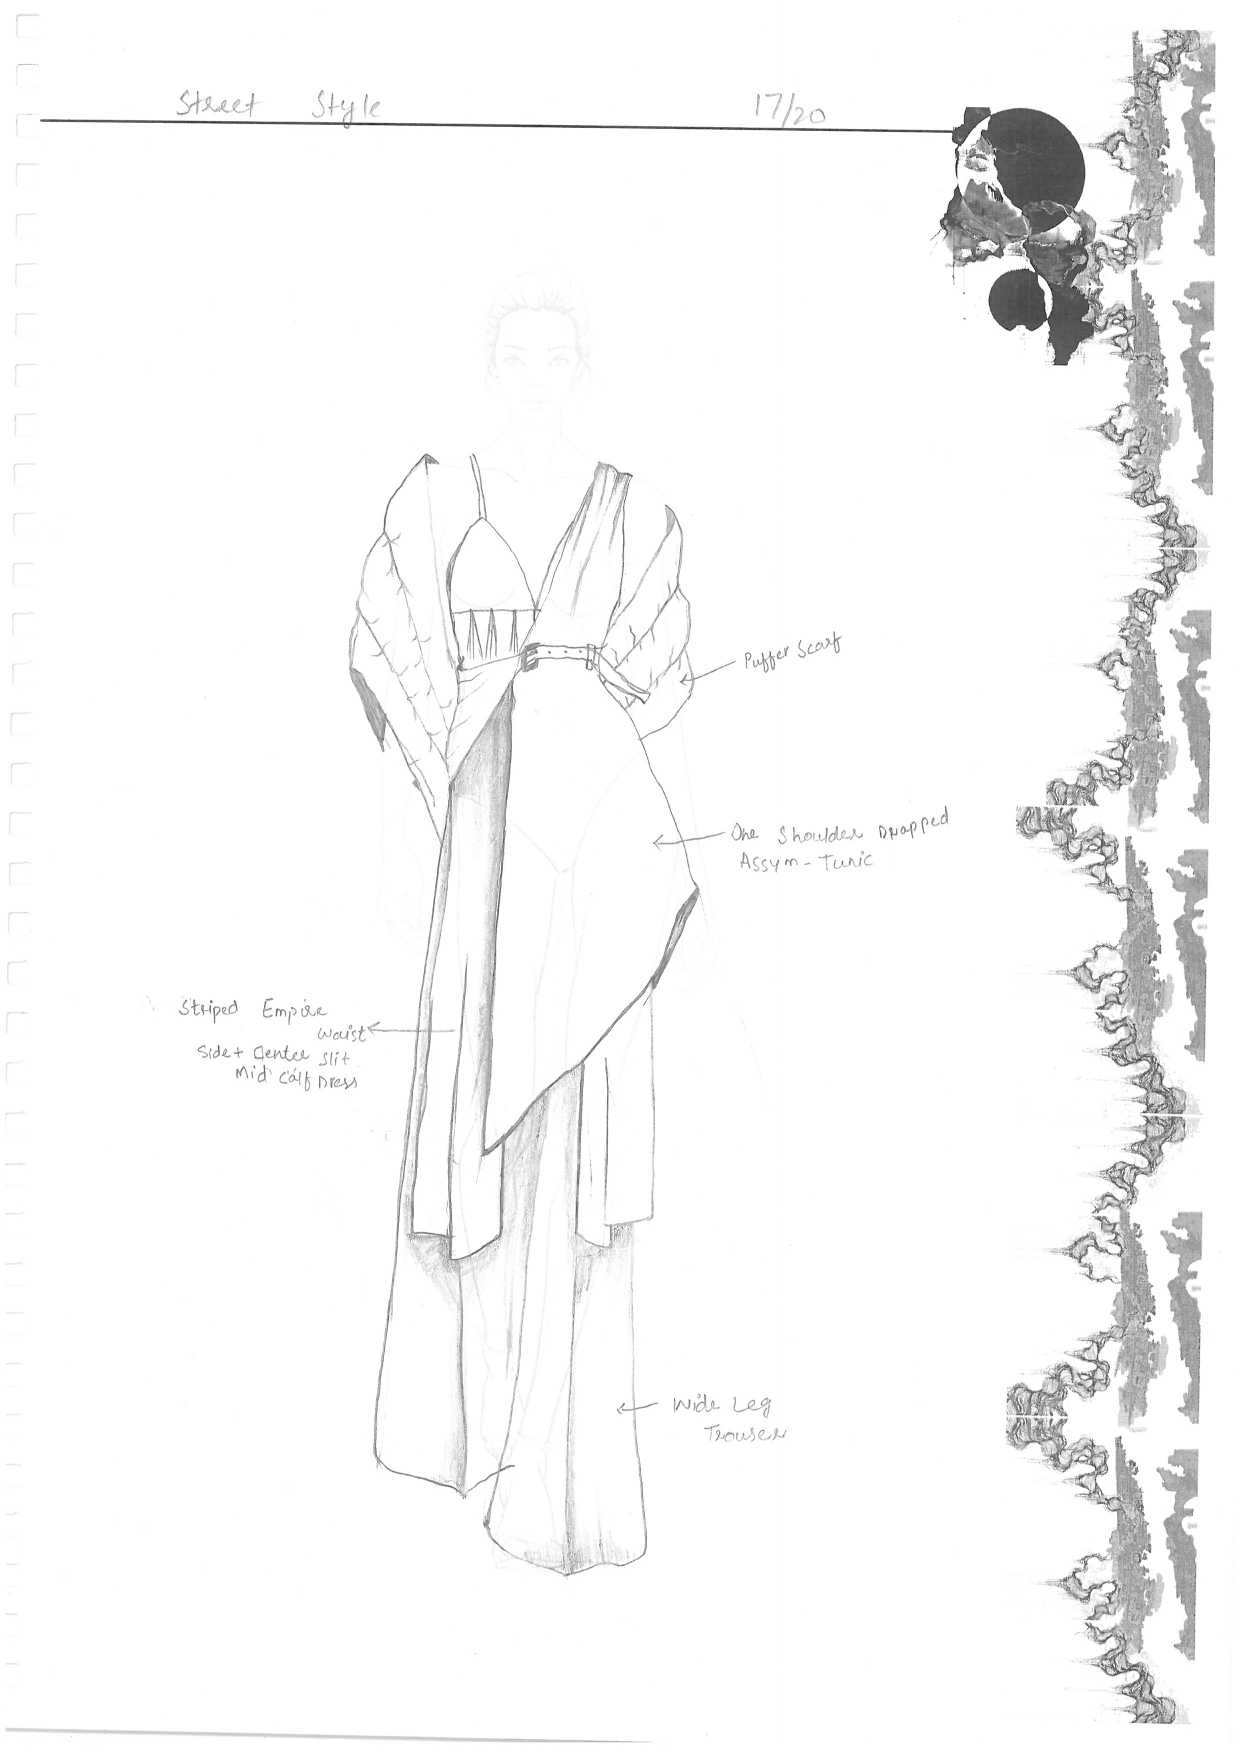 Street Style 17/20
Puffer Scarf
One Shoulder Drapped
Assym-Tunic
Striped Empire
Waist
Side + Center Slit
Mid Calf Dress
Wide Leg
Trouser